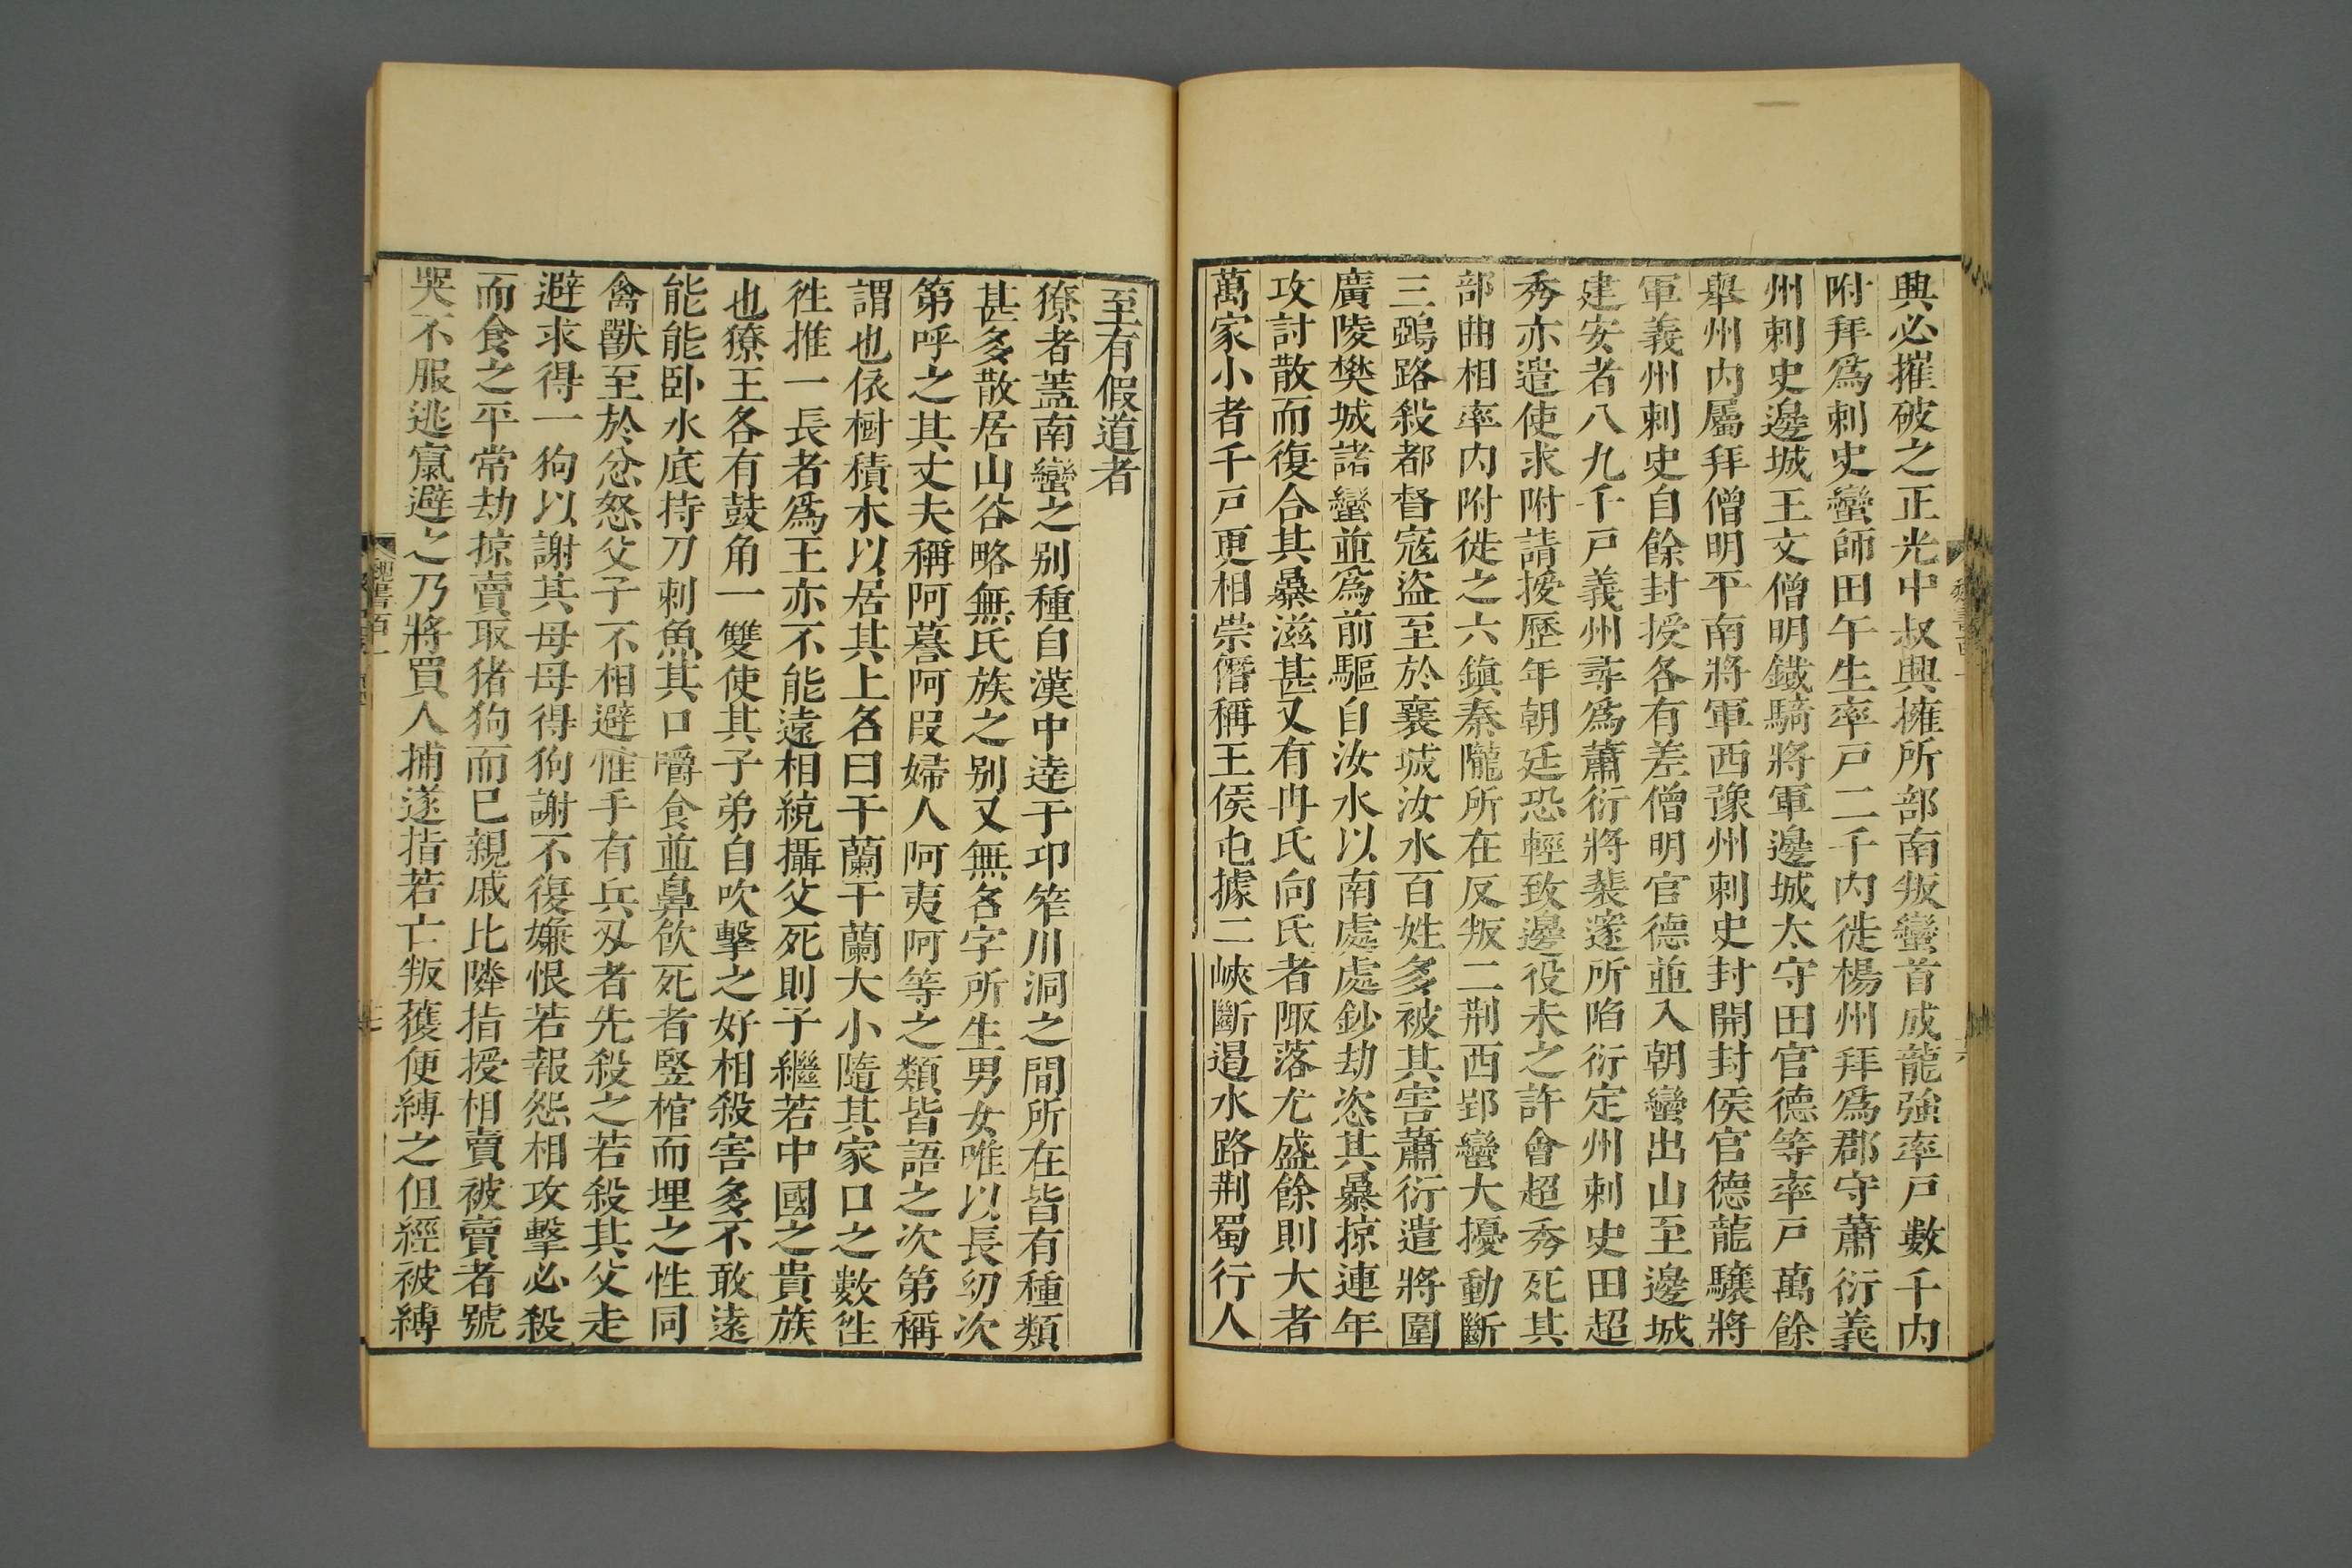 興必摧破之正光中叔興擁所部南叛蠻首成龍強率戸數千内
附拜爲刺史蠻師田午生率戸二千内徙楊州拜爲郡守蕭衍義
州刺史邊城王文僧明鐵騎將軍邊城太守田官德等率戸萬餘
舉州内屬拜僧明平南將軍西豫州刺史封開封侯官德龍驤將
軍義州刺史自餘封授各有差僧明官德並入朝蠻出山至邊城
建安者八九千戸義州尋爲蕭衍將裴邃所陷衍定州刺史田超
秀亦遣使求附請援歷年朝廷恐輕致邊役未之許會超秀死其
部曲相率内附徙之六鎮秦隴所在反叛二荆西郢蠻大擾動斷
三鵶路殺都督寇盜至於襄城汝水百姓多被其害蕭衍遣將圍
廣陵樊城諸蠻並爲前驅自汝水以南處處鈔劫恣其暴掠連年
攻討散而復合其暴滋甚又有冉氏向氏者陬落尤盛餘則大者
萬家小者千戸更相崇僭稱王侯屯據三峽斷遏水路荆蜀行人
至有假道者
獠者蓋南蠻之别種自漢中達于卭筰川洞之間所在皆有種類
甚多散居山谷略無氏族之别又無名字所生男女唯以長幼次
第呼之其丈夫稱阿謩阿叚婦人阿夷阿等之類皆語之次第稱
謂也依樹積木以居其上名曰干蘭干蘭大小隨其家口之數徃
徃推一長者爲王亦不能遠相統攝父死則子繼若中國之貴族
也獠王各有鼓角一雙使其子弟自吹擊之好相殺害多不敢遠
能能卧水底持刀刺魚其口嚼食並鼻飲死者竪棺而埋之性同
禽獸至於忿怒父子不相避惟手有兵刃者先殺之若殺其父走
避求得一狗以謝其母母得狗謝不復嫌恨若報怨相攻擊必殺
而食之平常劫掠賣取猪狗而已親戚比隣指授相賣被賣者號
哭不服逃竄避之乃將買人捕逐指若亡叛獲便縛之但經被縛
魏書百一